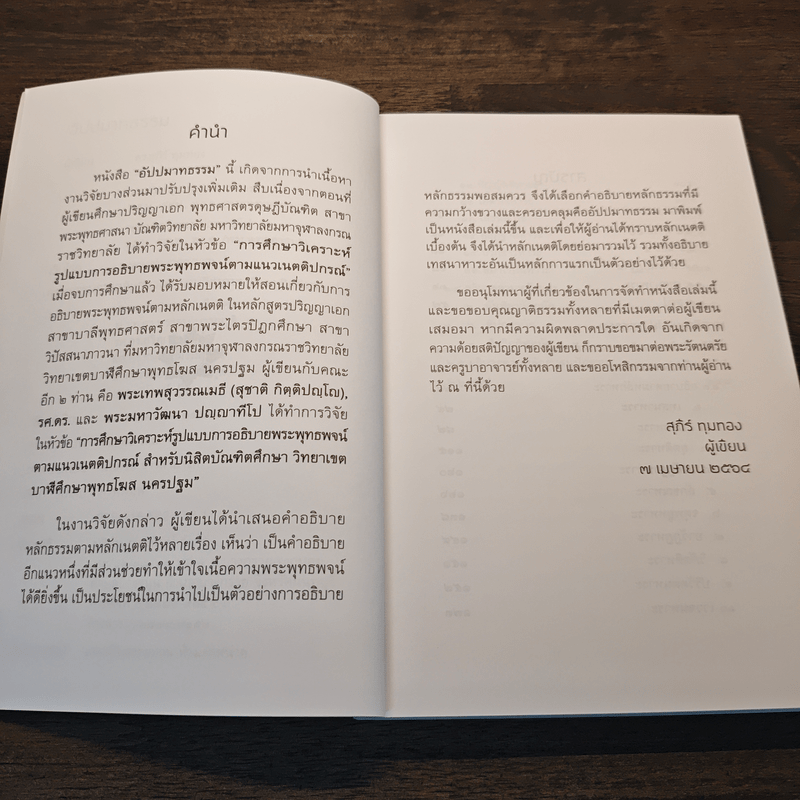 คำนำ
หนังสือ “อัปปมาทธรรม” นี้ เกิดจากการนำเนื้อหา
งานวิจัยบางส่วนมาปรับปรุงเพิ่มเติม สืบเนื่องจากตอนที่
ผู้เขียนศึกษาปริญญาเอก พุทธศาสตรดุษฎีบัณฑิต สาขา
พระพุทธศาสนา บัณฑิตวิทยาลัย มหาวิทยาลัยมหาจุฬาลงกรณ
ราชวิทยาลัย ได้ทำวิจัยในหัวข้อ “การศึกษาวิเคราะห์
รูปแบบการอธิบายพระพุทธพจน์ตามแนวเนตติปกรณ์”
เมื่อจบการศึกษาแล้ว ได้รับมอบหมายให้สอนเกี่ยวกับการ
อธิบายพระพุทธพจน์ตามหลักเนตติ ในหลักสูตรปริญญาเอก
สาขาบาลีพุทธศาสตร์ สาขาพระไตรปิฎกศึกษา สาขา
วิปัสสนาภาวนา ที่มหาวิทยาลัยมหาจุฬาลงกรณราชวิทยาลัย
วิทยาเขตบาฬีศึกษาพุทธโฆส นครปฐม ผู้เขียนกับคณะ
อีก ๒ ท่าน คือ พระเทพสุวรรณเมธี (สุชาติ กิตติปญฺโญ),
รศ.ดร. และ พระมหาวัฒนา ปญฺญาทีโป ได้ทำการวิจัย
ในหัวข้อ “การศึกษาวิเคราะห์รูปแบบการอธิบายพระพุทธพจน์
ตามแนวเนตติปกรณ์ สำหรับนิสิตบัณฑิตศึกษา วิทยาเขต
บาฬีศึกษาพุทธโฆส นครปฐม”
ในงานวิจัยดังกล่าว ผู้เขียนได้นำเสนอคำอธิบาย
หลักธรรมตามหลักเนตติไว้หลายเรื่อง เห็นว่า เป็นคำอธิบาย
อีกแนวหนึ่งที่มีส่วนช่วยทำให้เข้าใจเนื้อความพระพุทธพจน์
ได้ดียิ่งขึ้น เป็นประโยชน์ในการนำไปเป็นตัวอย่างการอธิบาย
หลักธรรมพอสมควร จึงได้เลือกคำอธิบายหลักธรรมที่มี
ความกว้างขวางและครอบคลุมคืออัปปมาทธรรม มาพิมพ์
เป็นหนังสือเล่มนี้ขึ้น และเพื่อให้ผู้อ่านได้ทราบหลักเนตติ
เบื้องต้น จึงได้นำหลักเนตติโดยย่อมารวมไว้ รวมทั้งอธิบาย
เทสนาหาระอันเป็นหลักการแรกเป็นตัวอย่างไว้ด้วย
ขออนุโมทนาผู้ที่เกี่ยวข้องในการจัดทำหนังสือเล่มนี้
และขอขอบคุณญาติธรรมทั้งหลายที่มีเมตตาต่อผู้เขียน
เสมอมา หากมีความผิดพลาดประการใด อันเกิดจาก
ความด้อยสติปัญญาของผู้เขียน ก็กราบขอขมาต่อพระรัตนตรัย
และครูบาอาจารย์ทั้งหลาย และขออโหสิกรรมจากท่านผู้อ่าน
ไว้ ณ ที่นี้ด้วย
สุภีร์ ทุมทอง
ผู้เขียน
๗ เมษายน ๒๕๖๔